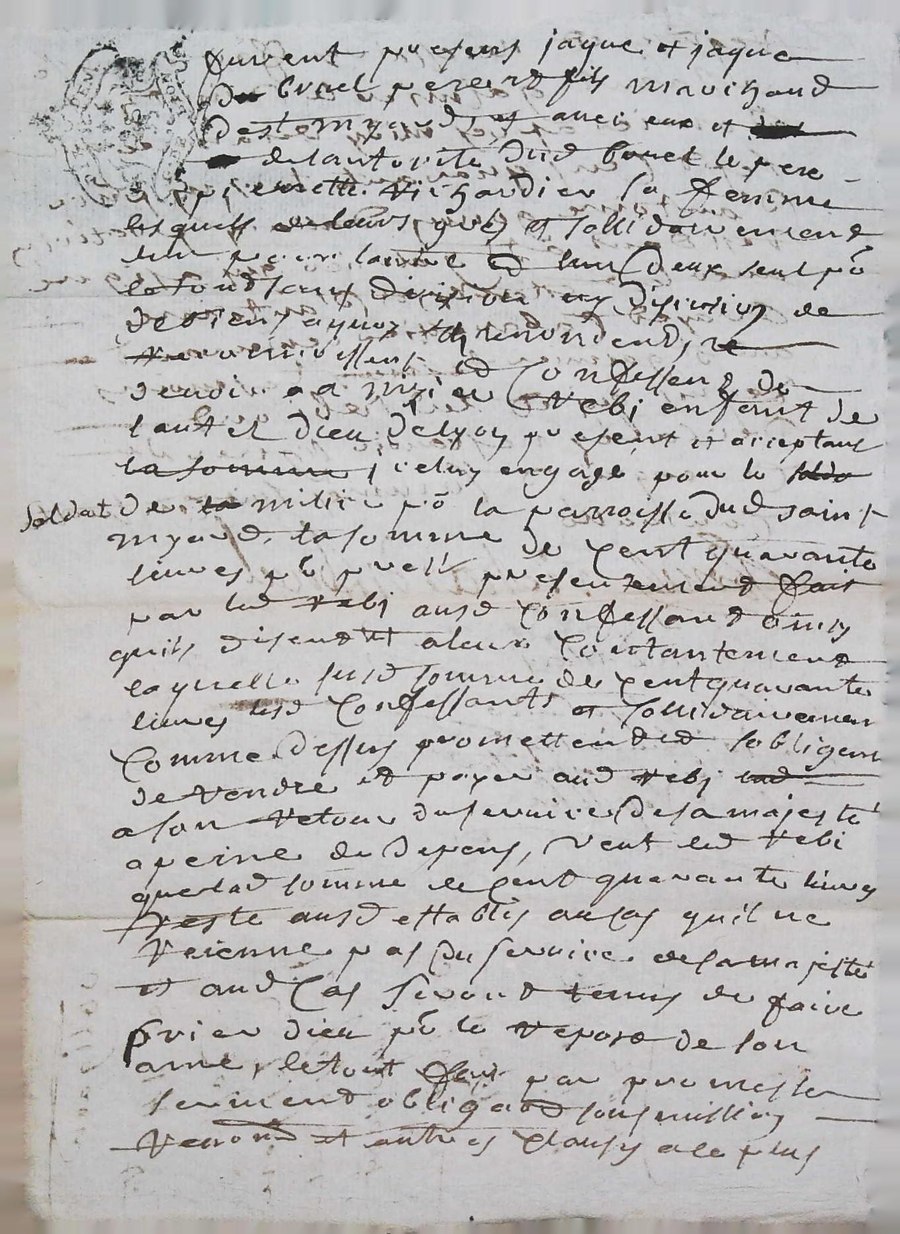 furent presens jaque et jaque
du bruel pere et fils marchand
de st myard, et avec eux et
de lautorité dud bruel le pere
pierrette richardier sa femme
lesquels de leurs grés et sollidairement
lun pour lautre et lun deux seul pō
le tout sans division ny discution de
de biens aquoy ils renondent,
devoir a
Rebi enfant de
lautel dieu de lyon present et acceptant
la somme iceluy engagé pour le
soldat de la milice pō la parroisse dud saint
myard, la somme de cent quarante
livres pō prest presentement fait
par led Rebi ausd confessant ainsy
quils disent et a leur contantement
laquelle susd somme de cent quarante
livres lesd confessants et sollidairement
comme dessus promettend et sobligent
de rendre et payer aud Rebi
a son retour du service de sa majesté
a peine de depens, veut led Rebi
que lad somme de cent quarante livres
reste ausd establis au cas quil ne
revienne pas du service de sa majesté
et aud cas seront tenus de faire
prier dieu pō le repos de son
ame, le tout fait par promesse
serment obligaōn soumission
renonō et autres clauses a le plus